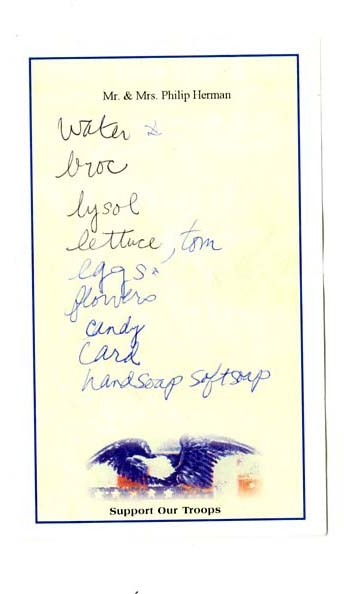 Mr. & Mrs. Philip Herman
water
broc
lysol
lettuce, tom
eggs
flowers
candy
card
handsoap softsoap
Support Our Troops